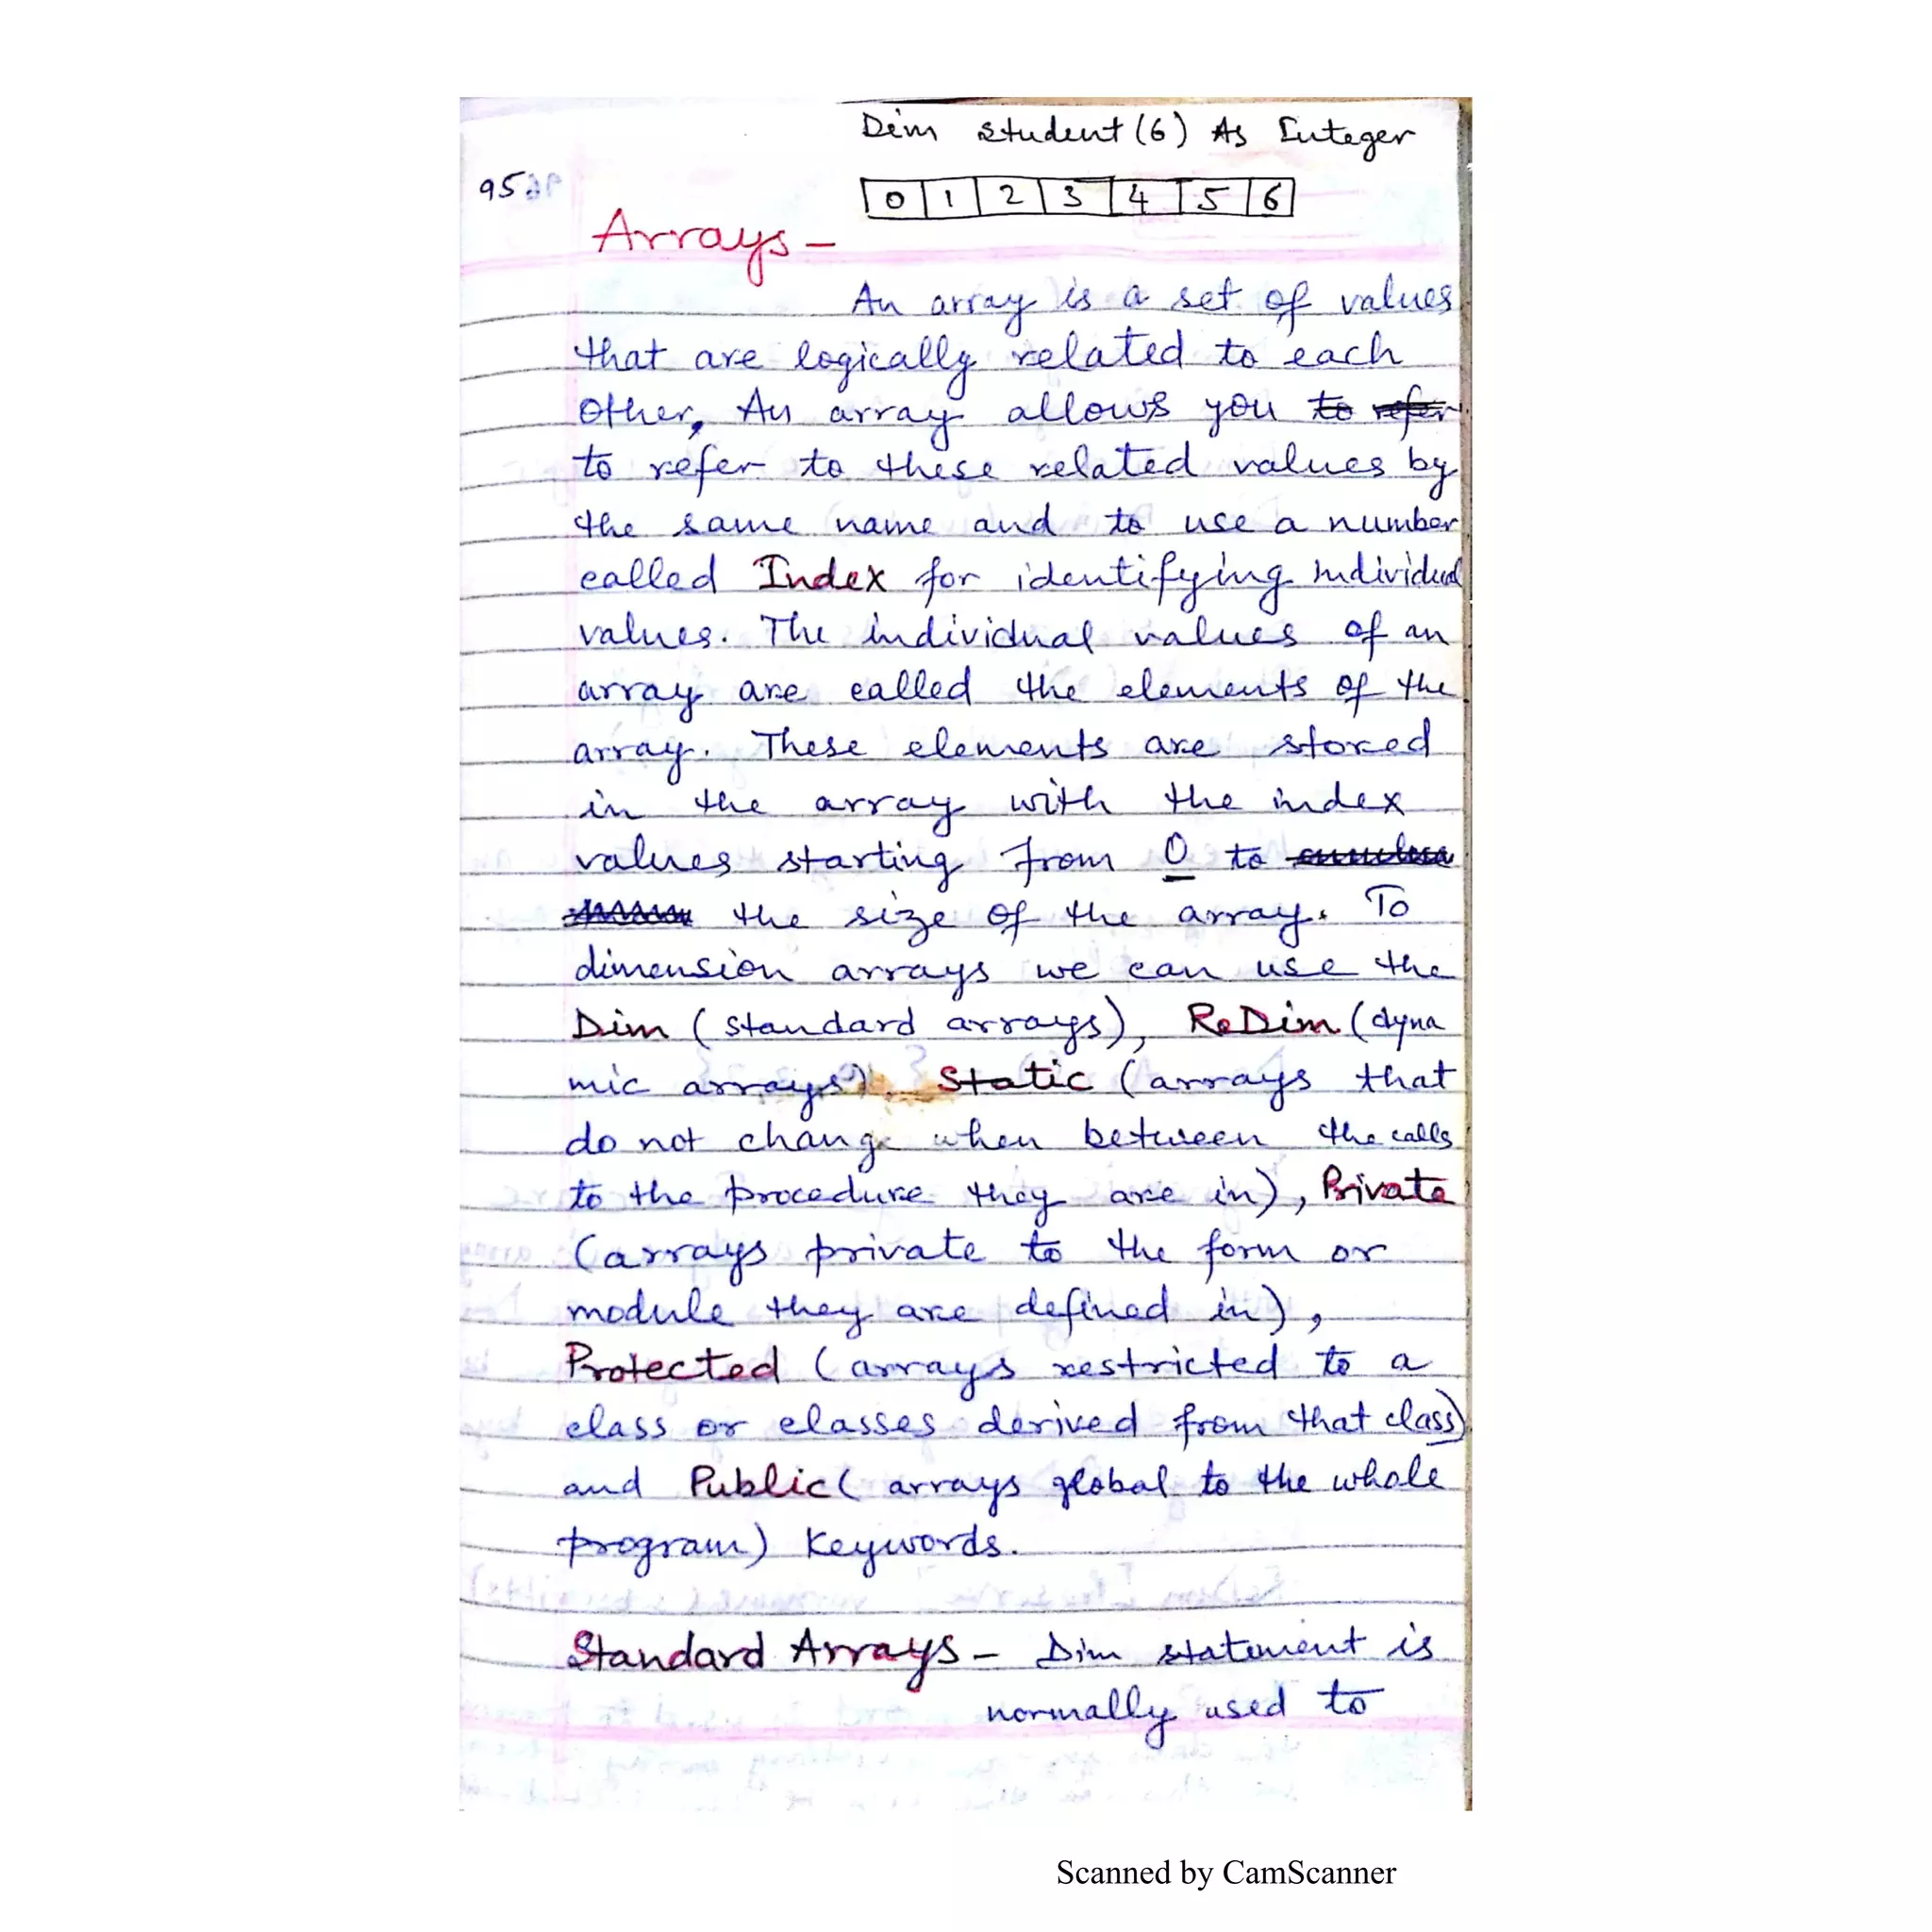 Dim student (6) As Integer
95
0 1 2 3 4 5 6
Arrays -
An array is a set of values
that are logically related to each
other, An array allows you to refer
to refer to these related values by
the same name and to use a number
called Index for identifying individual
values. The individual values of an
array are called the elements of the
array. These elements are stored
in the array with the index
values starting from 0 to
the size of the array. To
dimension arrays we can use the
Dim (standard arrays), ReDim (dyna
mic arrays), Static (arrays that
do not change when between the calls
to the procedure they are in), Private
(arrays private to the form or
module they are defined in),
Protected (arrays restricted to a
class or classes derived from that class)
and Public ( arrays global to the whole
program) keywords.
Standard Arrays - Dim statement is
normally used to
Scanned by CamScanner